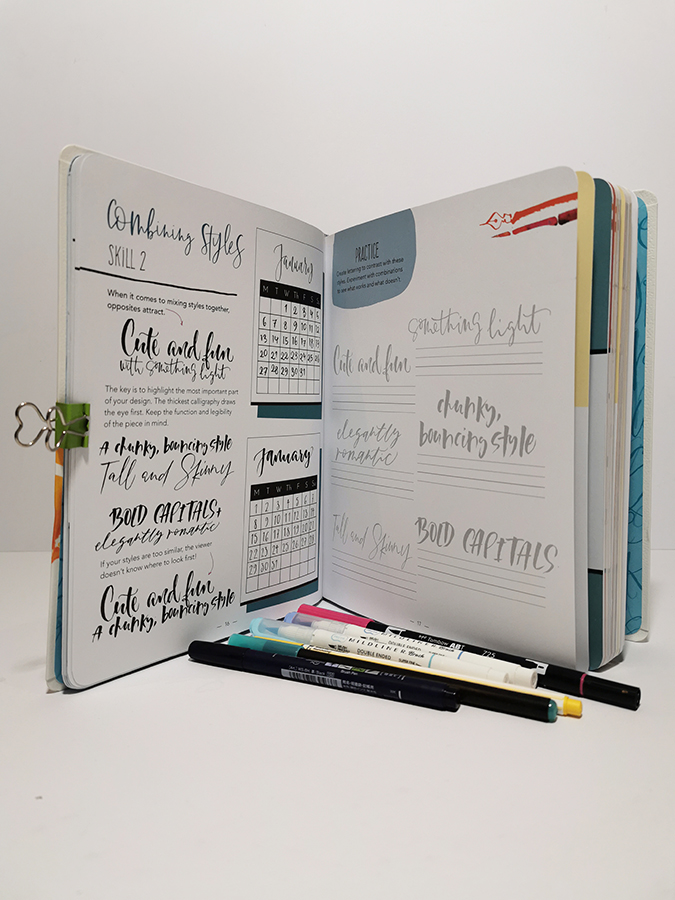 combining styles
SKILL 2
When it comes to mixing styles together,
opposites attract.
Cute and fun
with something light
The key is to highlight the most important part
of your design. The thickest calligraphy draws
the eye first. Keep the function and legibility
of the piece in mind.
A chunky, bouncing style
Tall and Skinny
BOLD CAPITALS+
elegantly romantic
If your styles are too similar, the viewer
doesn't know where to look first!
Cute and fun
A chunky, bouncing style
January
M T W Th F S Su
1 2 3 4 5
6 7 8 9 10 11 12
13 14 15 16 17 18 19
20 21 22 23 24 25 26
27 28 29 30 31
January
M T W Th F S Su
1 2 3 4 5 6 7
8 9 10 11 12 13 14
15 16 17 18 19 20 21
22 23 24 25 26 27 28
29 30 31
16
PRACTICE
Create lettering to contrast with these
styles. Experiment with combinations
to see what works and what doesn't.
something light
Cute and fun
chunky,
bouncing style
elegantly
romantic
Tall and Skinny
BOLD CAPITALS
17
Tombow ABT 725
DOUBLE ENDED
MILDLINER Brush
DOUBLE ENDED
Brush Pen